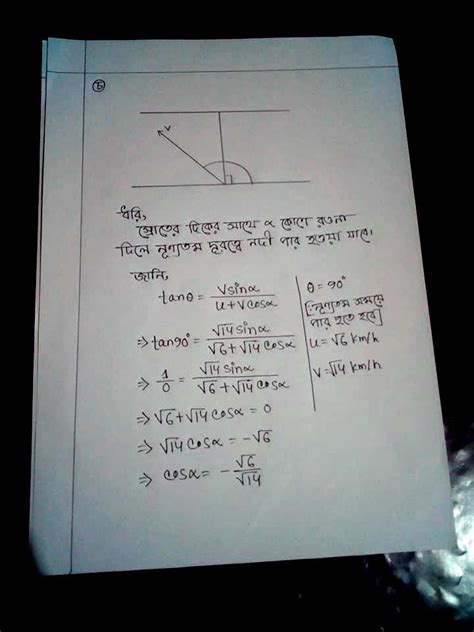 চ
v
ধরি,
স্রোতের দিকের সাথে α কোণে রওনা
দিলে নূন্যতম দূরত্বে নদী পার হওয়া যাবে।
জানি,
tanθ = vsinα / u+vcosα
⇒ tan90° = √14 sinα / √6+√14 cosα
⇒ 1/0 = √14 sinα / √6+√14 cosα
⇒ √6+√14 cosα = 0
⇒ √14 cosα = -√6
⇒ cosα = - √6/√14
θ = 90°
[নূন্যতম সময়ে
পার হতে হবে]
u = √6 km/h
v = √14 km/h